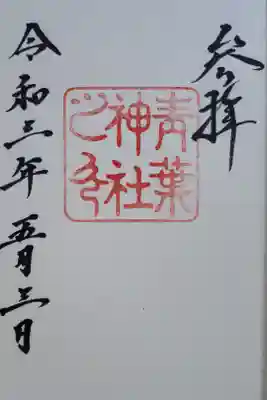 参拝
青葉
神社
令和三年五月三日